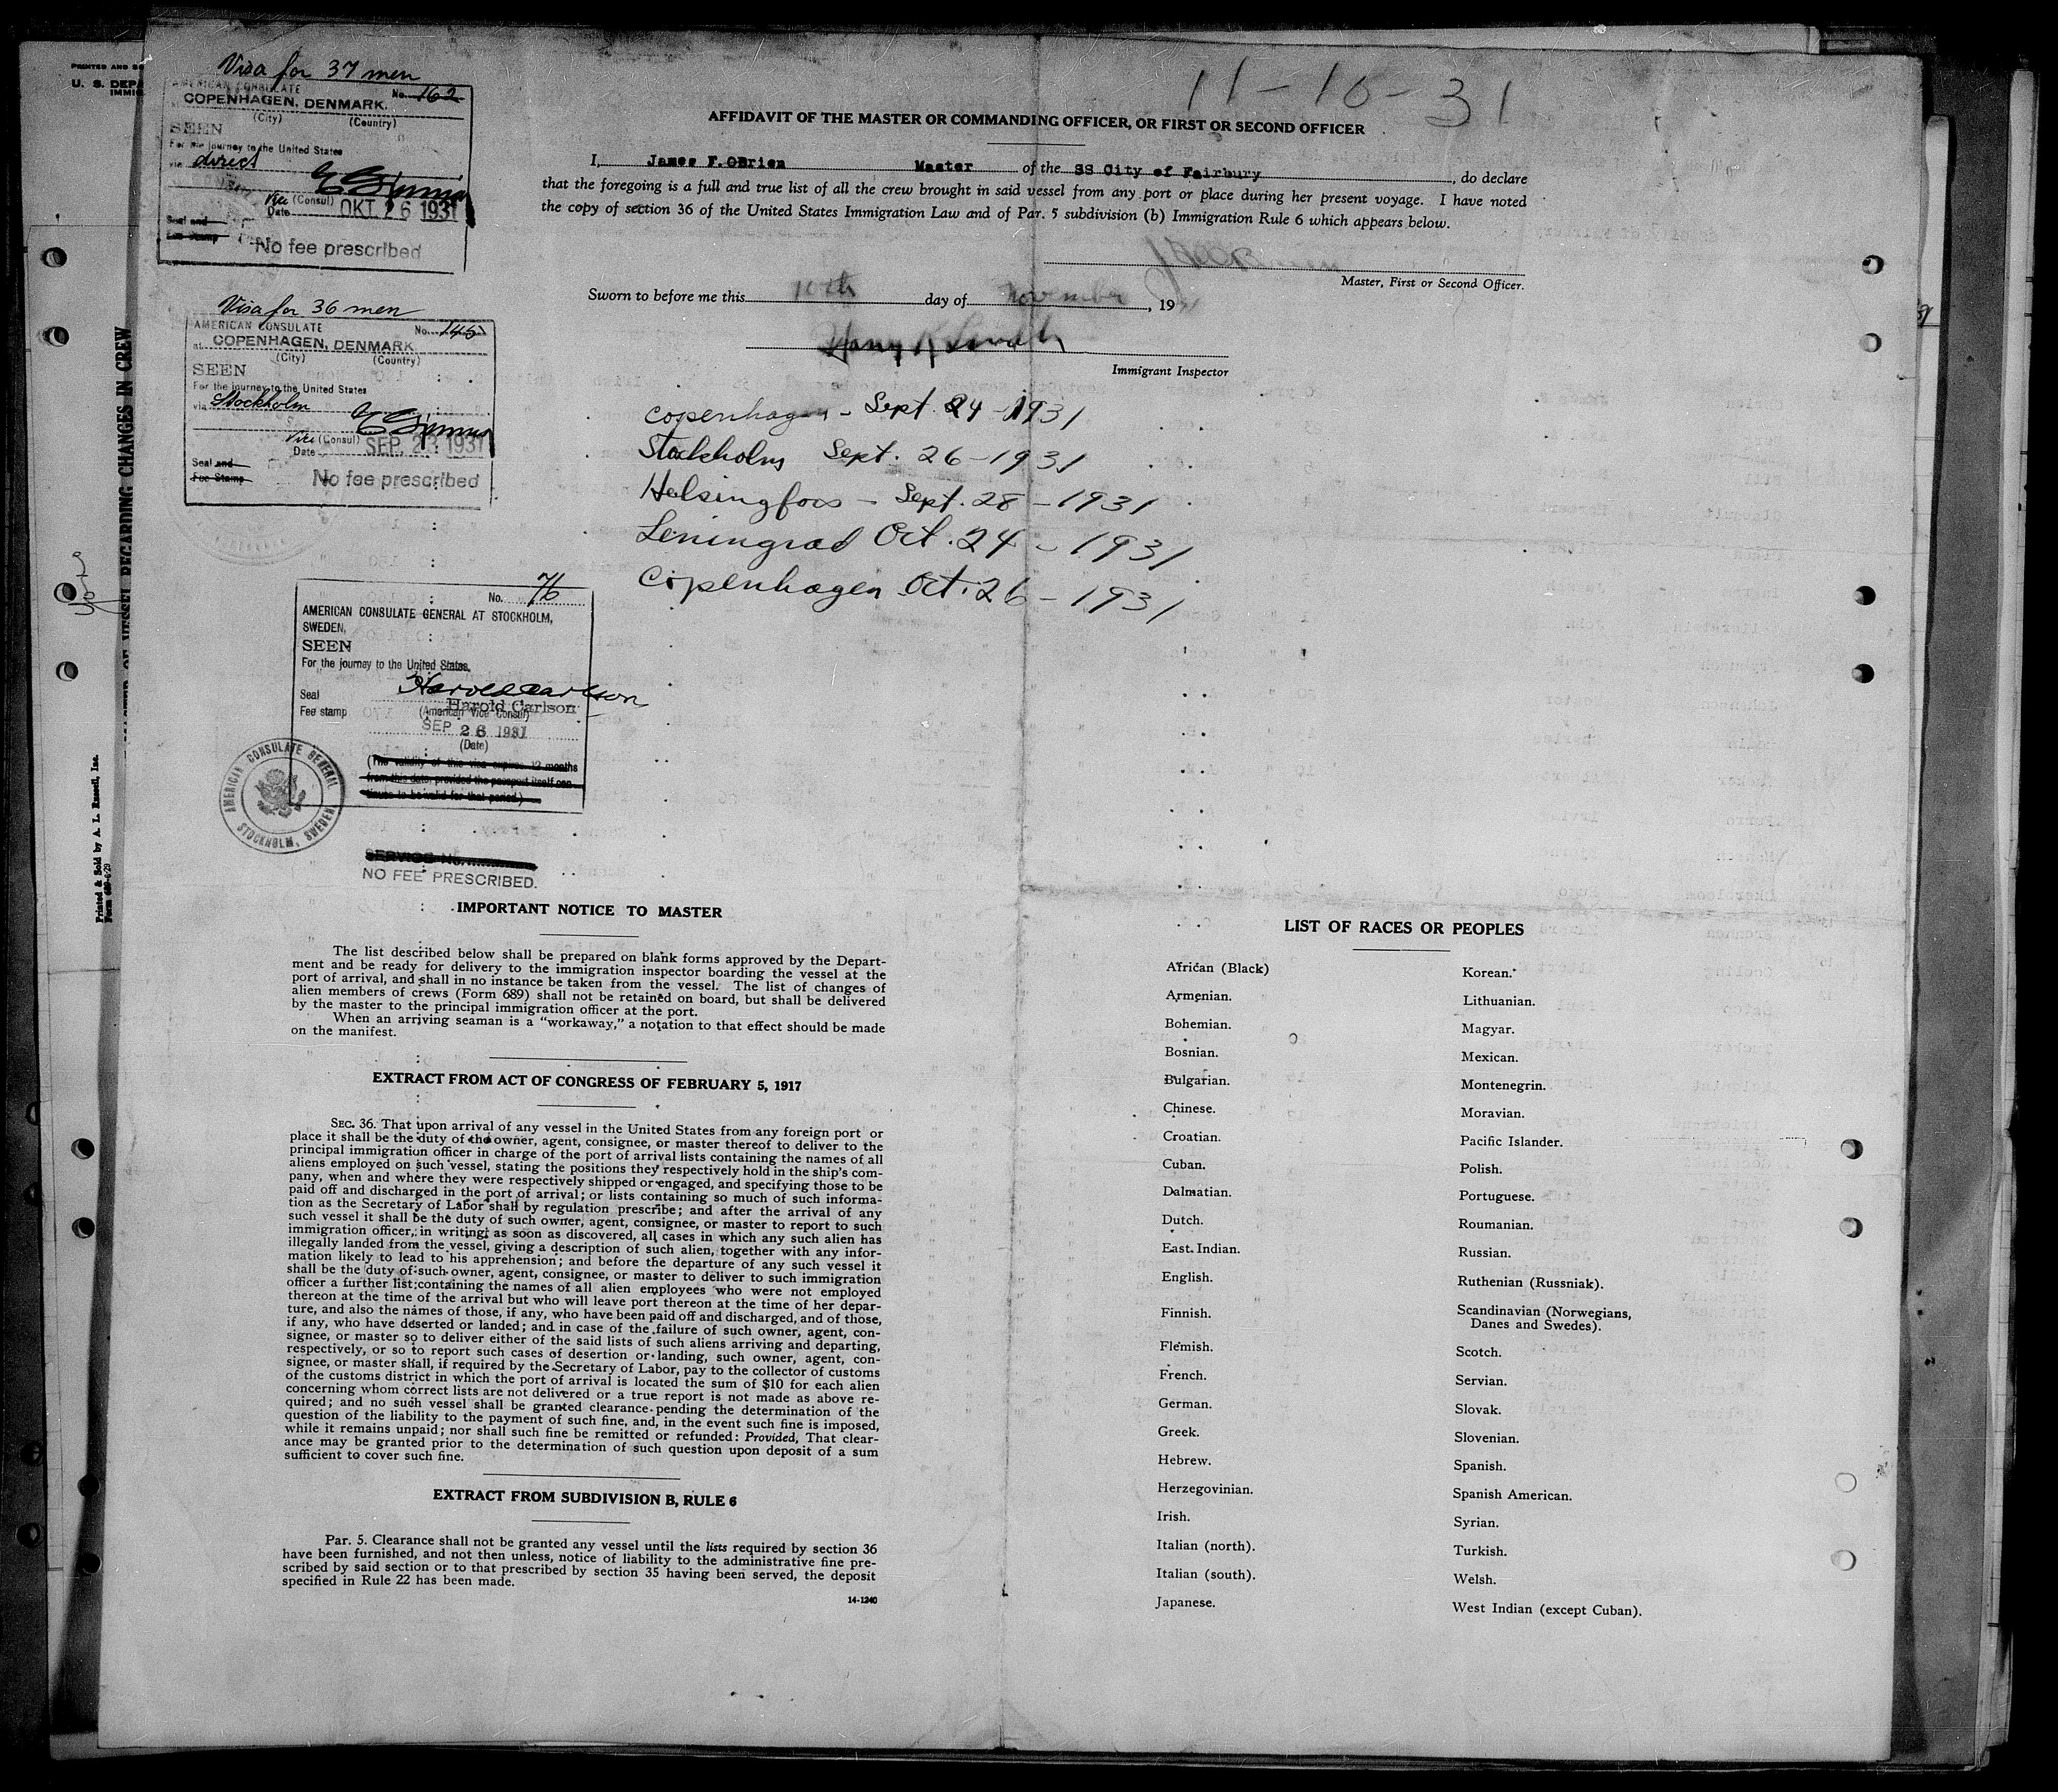 PRINTED AND SO
U. S. DEPA
IMMIG
Visa for 37 men
AMERICAN CONSULATE No. 162
COPENHAGEN, DENMARK.
(City) (Country)
SEEN
For the journey to the United States
via direct
Vice (Consul)
Date OKT. 26 1931
Seal and
Fee Stamp
No fee prescribed
Visa for 36 men
AMERICAN CONSULATE No. 145
at COPENHAGEN, DENMARK
(City) (Country)
SEEN
For the journey to the United States
via Stockholm
Vice (Consul)
Date SEP. 23 1931
Seal and
Fee Stamp
No fee prescribed
No. 76
AMERICAN CONSULATE GENERAL AT STOCKHOLM,
SWEDEN,
SEEN
For the journey to the United States.
Harold Carlson
Seal
Harold Carlson
Fee stamp (American Vice Consul)
SEP 26 1931
(Date)
(The validity of this visa expires 12 months
from this date provided the passport itself con-
tinues to be valid for that period.)
AMERICAN CONSULATE GENERAL
STOCKHOLM, SWEDEN
SERVICE No.
NO FEE PRESCRIBED.
OF VESSEL REGARDING CHANGES IN CREW
Printed & Sold by A. L. Russell, Inc.
Form 689-6-29
11-10-31
AFFIDAVIT OF THE MASTER OR COMMANDING OFFICER, OR FIRST OR SECOND OFFICER
I, James F. OBrien Master of the SS City of Fairbury, do declare
that the foregoing is a full and true list of all the crew brought in said vessel from any port or place during her present voyage. I have noted
the copy of section 36 of the United States Immigration Law and of Par. 5 subdivision (b) Immigration Rule 6 which appears below.
Master, First or Second Officer.
Sworn to before me this 10th day of November, 19
Immigrant Inspector
Copenhagen - Sept. 24 - 1931
Stockholm Sept. 26 - 1931
Helsingfors - Sept. 28 - 1931
Leningrad Oct. 24 - 1931
Copenhagen Oct. 26 - 1931
IMPORTANT NOTICE TO MASTER
The list described below shall be prepared on blank forms approved by the Depart-
ment and be ready for delivery to the immigration inspector boarding the vessel at the
port of arrival, and shall in no instance be taken from the vessel. The list of changes of
alien members of crews (Form 689) shall not be retained on board, but shall be delivered
by the master to the principal immigration officer at the port.
When an arriving seaman is a "workaway," a notation to that effect should be made
on the manifest.
EXTRACT FROM ACT OF CONGRESS OF FEBRUARY 5, 1917
SEC. 36. That upon arrival of any vessel in the United States from any foreign port or
place it shall be the duty of the owner, agent, consignee, or master thereof to deliver to the
principal immigration officer in charge of the port of arrival lists containing the names of all
aliens employed on such vessel, stating the positions they respectively hold in the ship's com-
pany, when and where they were respectively shipped or engaged, and specifying those to be
paid off and discharged in the port of arrival; or lists containing so much of such informa-
tion as the Secretary of Labor shall by regulation prescribe; and after the arrival of any
such vessel it shall be the duty of such owner, agent, consignee, or master to report to such
immigration officer, in writing, as soon as discovered, all cases in which any such alien has
illegally landed from the vessel, giving a description of such alien, together with any infor-
mation likely to lead to his apprehension; and before the departure of any such vessel it
shall be the duty of such owner, agent, consignee, or master to deliver to such immigration
officer a further list containing the names of all alien employees who were not employed
thereon at the time of the arrival but who will leave port thereon at the time of her depar-
ture, and also the names of those, if any, who have been paid off and discharged, and of those,
if any, who have deserted or landed; and in case of the failure of such owner, agent, con-
signee, or master so to deliver either of the said lists of such aliens arriving and departing,
respectively, or so to report such cases of desertion or landing, such owner, agent, con-
signee, or master shall, if required by the Secretary of Labor, pay to the collector of customs
of the customs district in which the port of arrival is located the sum of $10 for each alien
concerning whom correct lists are not delivered or a true report is not made as above re-
quired; and no such vessel shall be granted clearance pending the determination of the
question of the liability to the payment of such fine, and, in the event such fine is imposed,
while it remains unpaid; nor shall such fine be remitted or refunded: Provided, That clear-
ance may be granted prior to the determination of such question upon deposit of a sum
sufficient to cover such fine.
EXTRACT FROM SUBDIVISION B, RULE 6
Par. 5. Clearance shall not be granted any vessel until the lists required by section 36
have been furnished, and not then unless, notice of liability to the administrative fine pre-
scribed by said section or to that prescribed by section 35 having been served, the deposit
specified in Rule 22 has been made.
14-1240
LIST OF RACES OR PEOPLES
African (Black)
Armenian.
Bohemian.
Bosnian.
Bulgarian.
Chinese.
Croatian.
Cuban.
Dalmatian.
Dutch.
East Indian.
English.
Finnish.
Flemish.
French.
German.
Greek.
Hebrew.
Herzegovinian.
Irish.
Italian (north).
Italian (south).
Japanese.
Korean.
Lithuanian.
Magyar.
Mexican.
Montenegrin.
Moravian.
Pacific Islander.
Polish.
Portuguese.
Roumanian.
Russian.
Ruthenian (Russniak).
Scandinavian (Norwegians,
Danes and Swedes).
Scotch.
Servian.
Slovak.
Slovenian.
Spanish.
Spanish American.
Syrian.
Turkish.
Welsh.
West Indian (except Cuban).